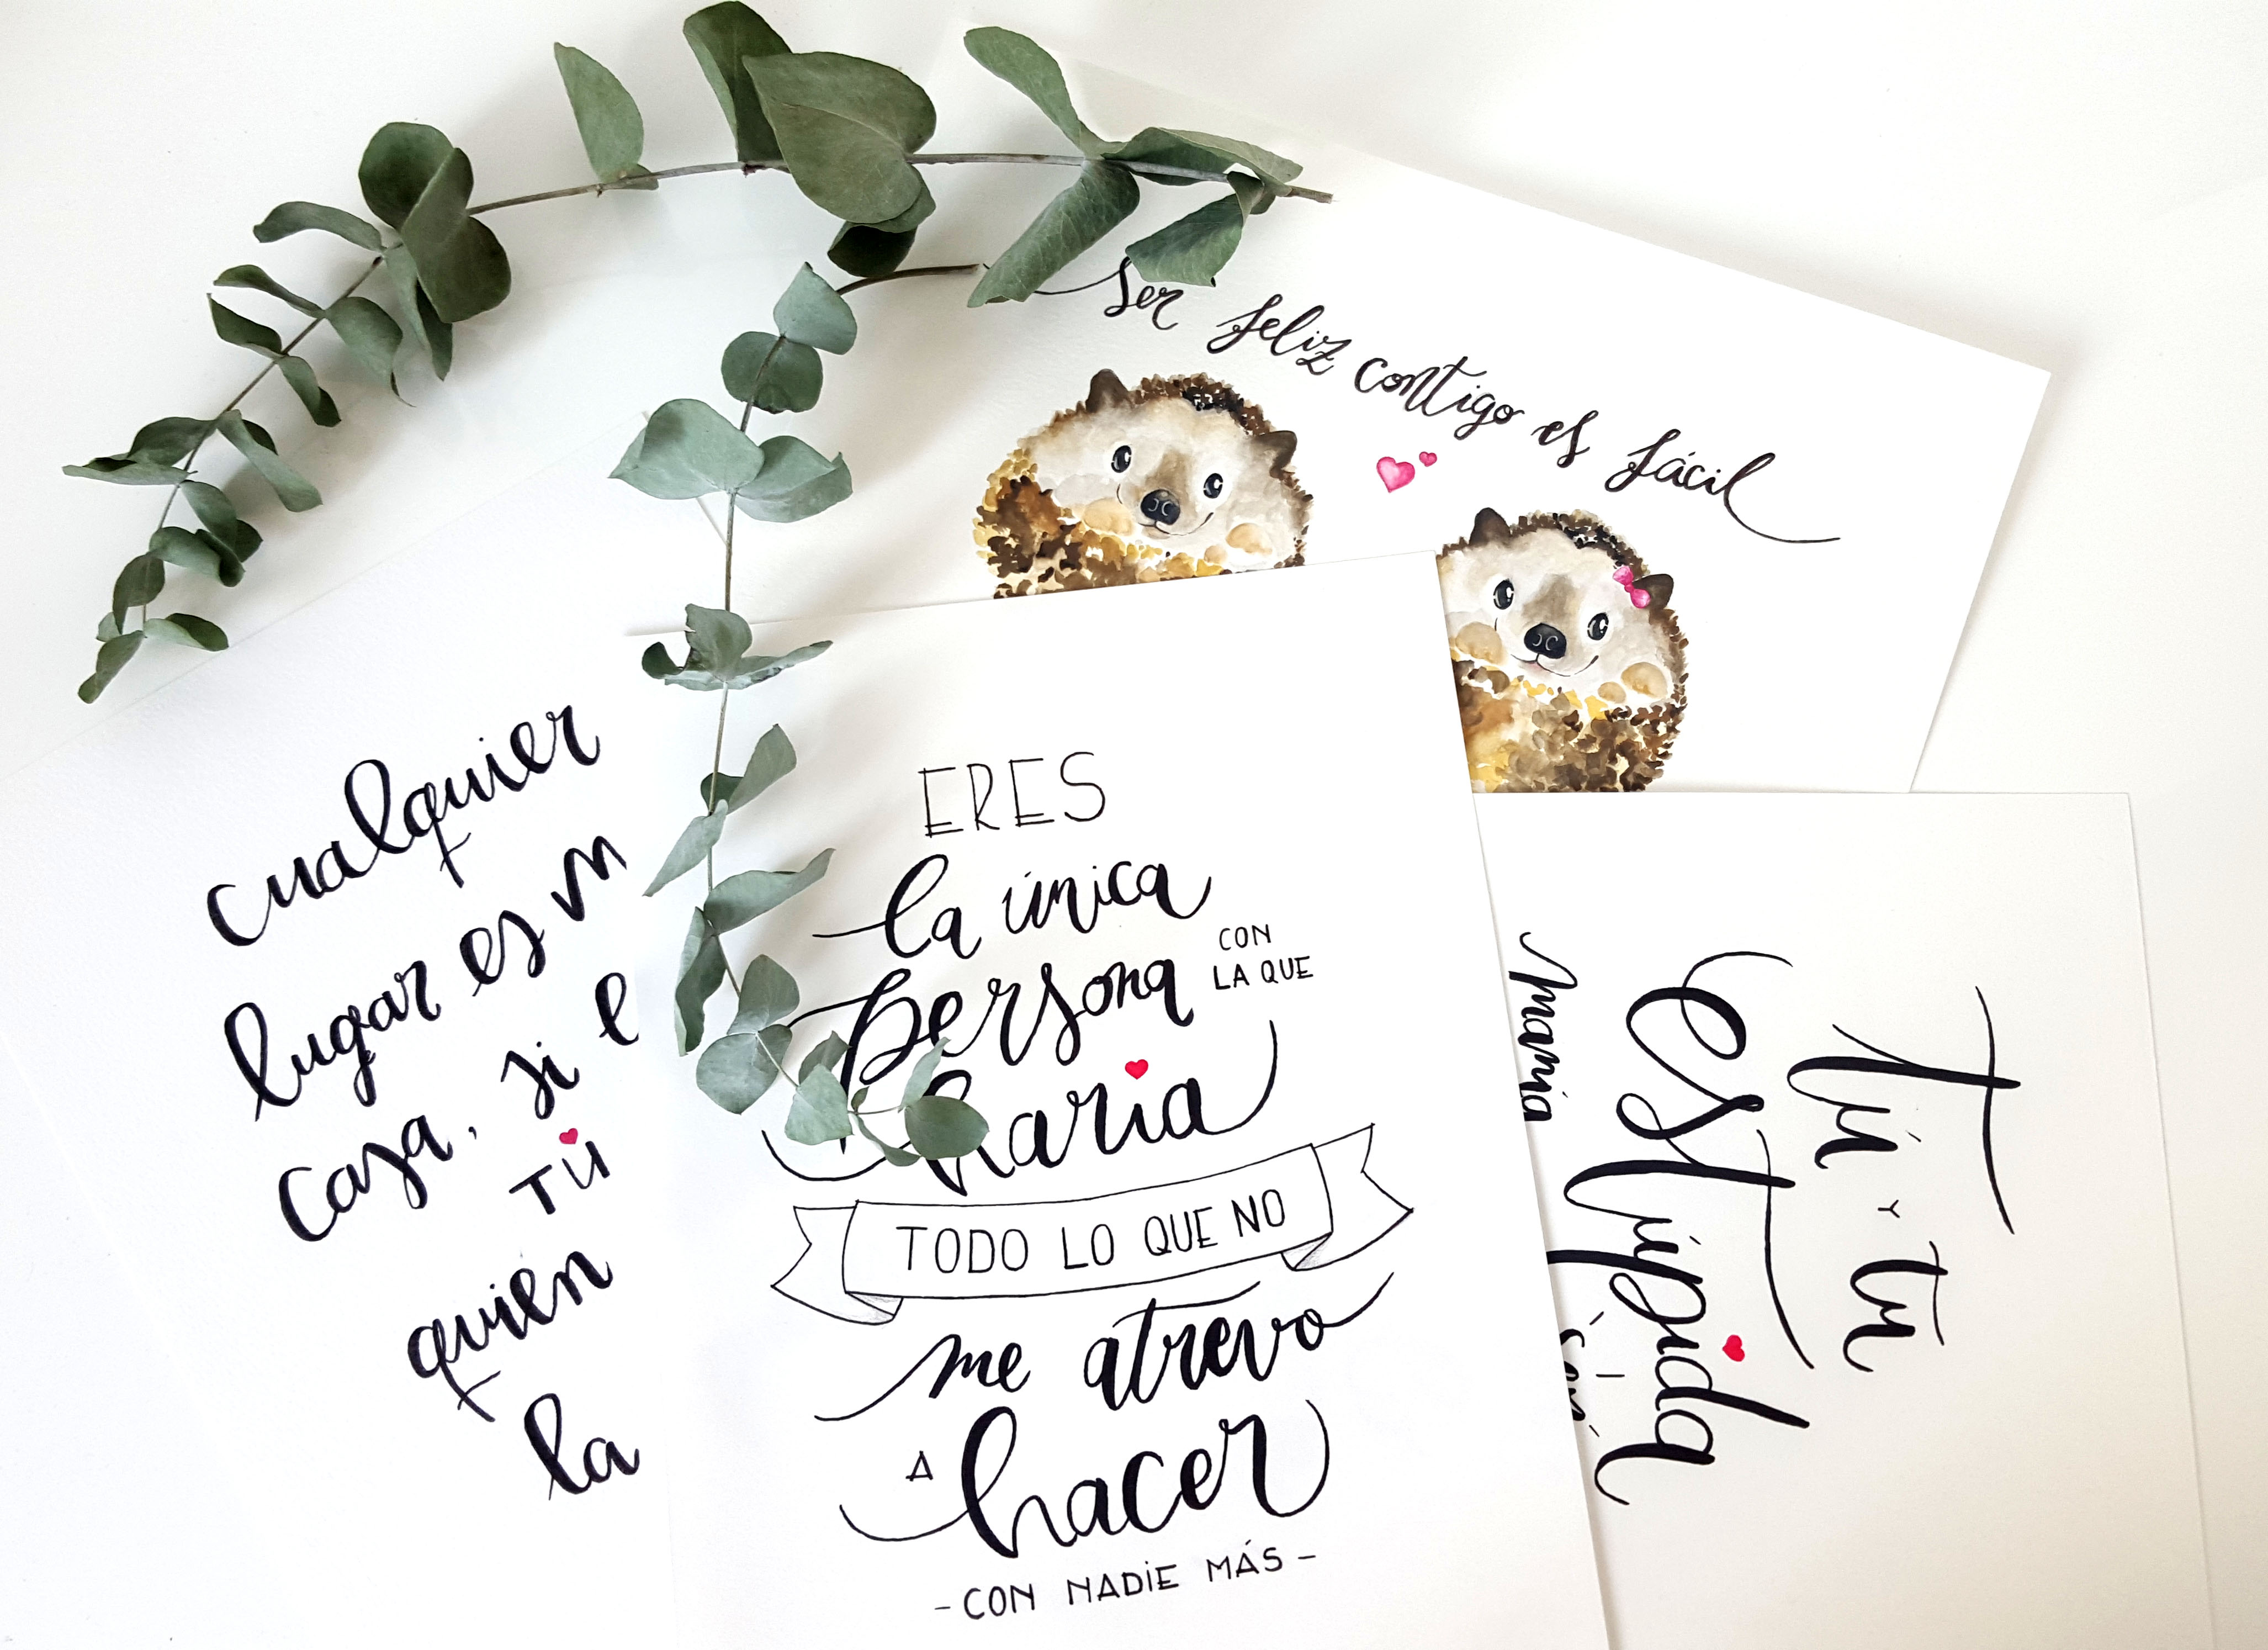 Ser feliz contigo es fácil
cualquier
lugar es
casa, si
TÚ
quien
la
ERES
la única
persona CON
LA QUE
haria
TODO LO QUE NO
me atrevo
A hacer
- CON NADIE MÁS -
Tú y tu
estúpida
manía